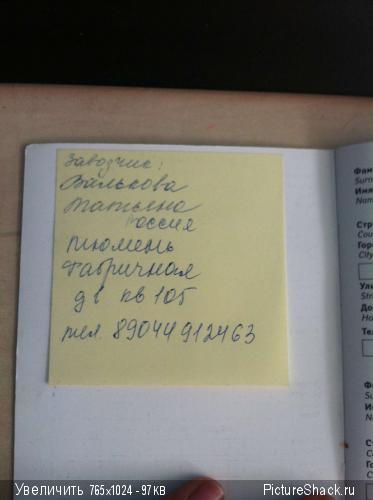 Заводчик:
Валькова
Татьяна
Россия
Тюмень
Фабричная
д 1 кв 105
тел. 89044912463
Фам
Surn
Имя
Nam
Стр
Cou
Горо
City
Ули
Stre
До
Hou
Тел
Фа
Su
И
Na
Ст
Co
Го
Ci
Увеличить 765x1024 - 97KB
PictureShack.ru